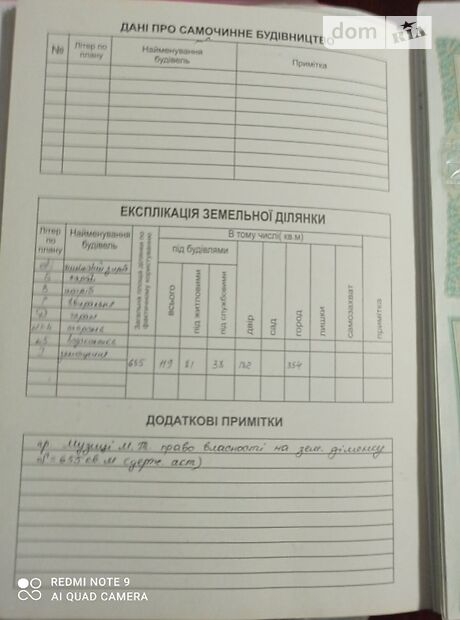 ДАНІ ПРО САМОЧИННЕ БУДІВНИЦТВО
dom RIA
№ Літер по плану Найменування будівель Примітка
ЕКСПЛІКАЦІЯ ЗЕМЕЛЬНОЇ ДІЛЯНКИ
Літер по плану Найменування будівель Загальна площа ділянки по фактичному користуванню В тому числі( кв.м)
під будівлями
всього під житловими під службовими двір сад город лишки самозахват примітка
Б сарай
В погріб
Г вбиральня
гараж
огорожа
655 119 81 38 182 354
ДОДАТКОВІ ПРИМІТКИ
гр. Музиці М. Т. право власності на зем. ділянку
S = 655 кв м (держ. акт)
REDMI NOTE 9
AI QUAD CAMERA